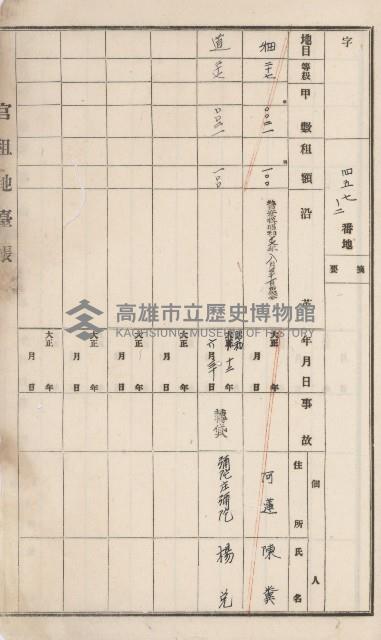 字
四五七ノ二番地
摘要
地目 等級 甲數 租額 沿革 年月日 事故 個人 住所 氏名
畑 二十七 〇〇二一 一〇〇 大正 年 月 日 阿蓮 陳糞
道 一〇〇 昭和 十二年 六月 日 轉貸 彌陀庄彌陀 楊兌
大正 年 月 日
大正 年 月 日
大正 年 月 日
大正 年 月 日
官租地臺帳
高雄市立歷史博物館
KAOHSIUNG MUSEUM OF HISTORY